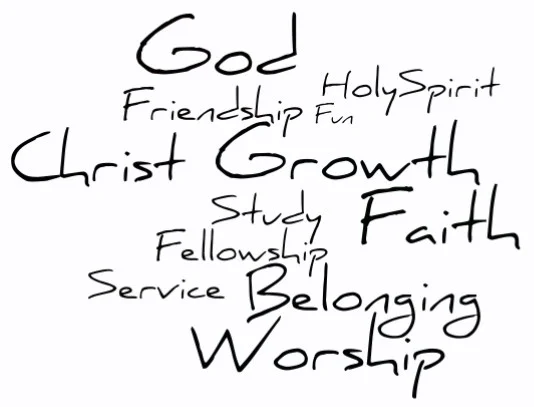 God
HolySpirit
Friendship Fun
Christ Growth
Study Faith
Fellowship
Service Belonging
Worship